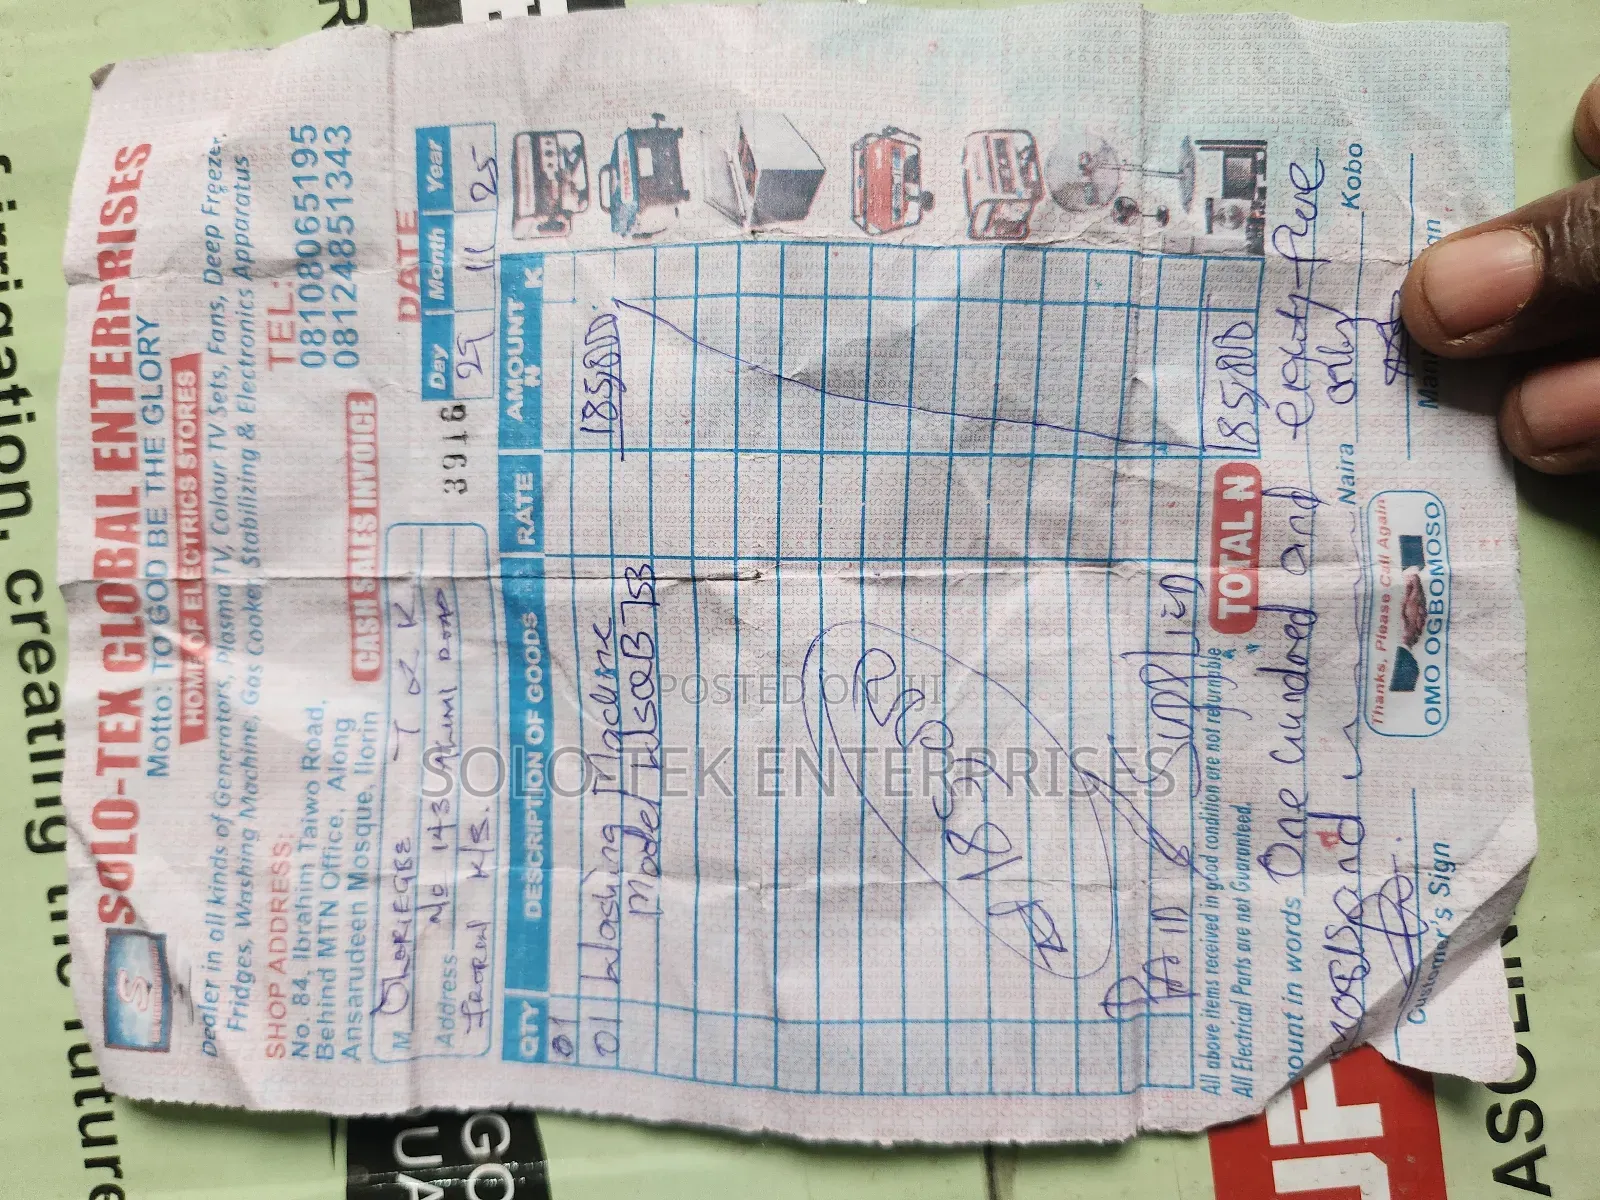 SOLO-TEX GLOBAL ENTERPRISES
Motto: TO GOD BE THE GLORY
HOME OF ELECTRICS STORES
Dealer in all kinds of Generators, Plasma TV, Colour TV Sets, Fans, Deep Freezer,
Fridges, Washing Machine, Gas cooker, Stabilizing & Electronics Apparatus
SHOP ADDRESS:
No. 84, Ibrahim Taiwo Road,
Behind MTN Office, Along
Ansarudeen Mosque, Ilorin
TEL:
08108065195
08124851343
CASH SALES INVOICE
DATE
Day Month Year
29 11 25
3916
M
Address No 143
QTY DESCRIPTION OF GOODS RATE AMOUNT
N K
01
01 Washing Machine 185,000
Model
185000
PAID & SUPPLIED
TOTAL N 185,000
All above items received in good condition are not returnable
All Electrical Parts are not Guaranteed.
ount in words One hundred and eighty-five
thousand only
Naira Kobo
Customer's Sign
Thanks, Please Call Again
OMO OGBOMOSO
POSTED ON JIJI
SOLO-TEK ENTERPRISES